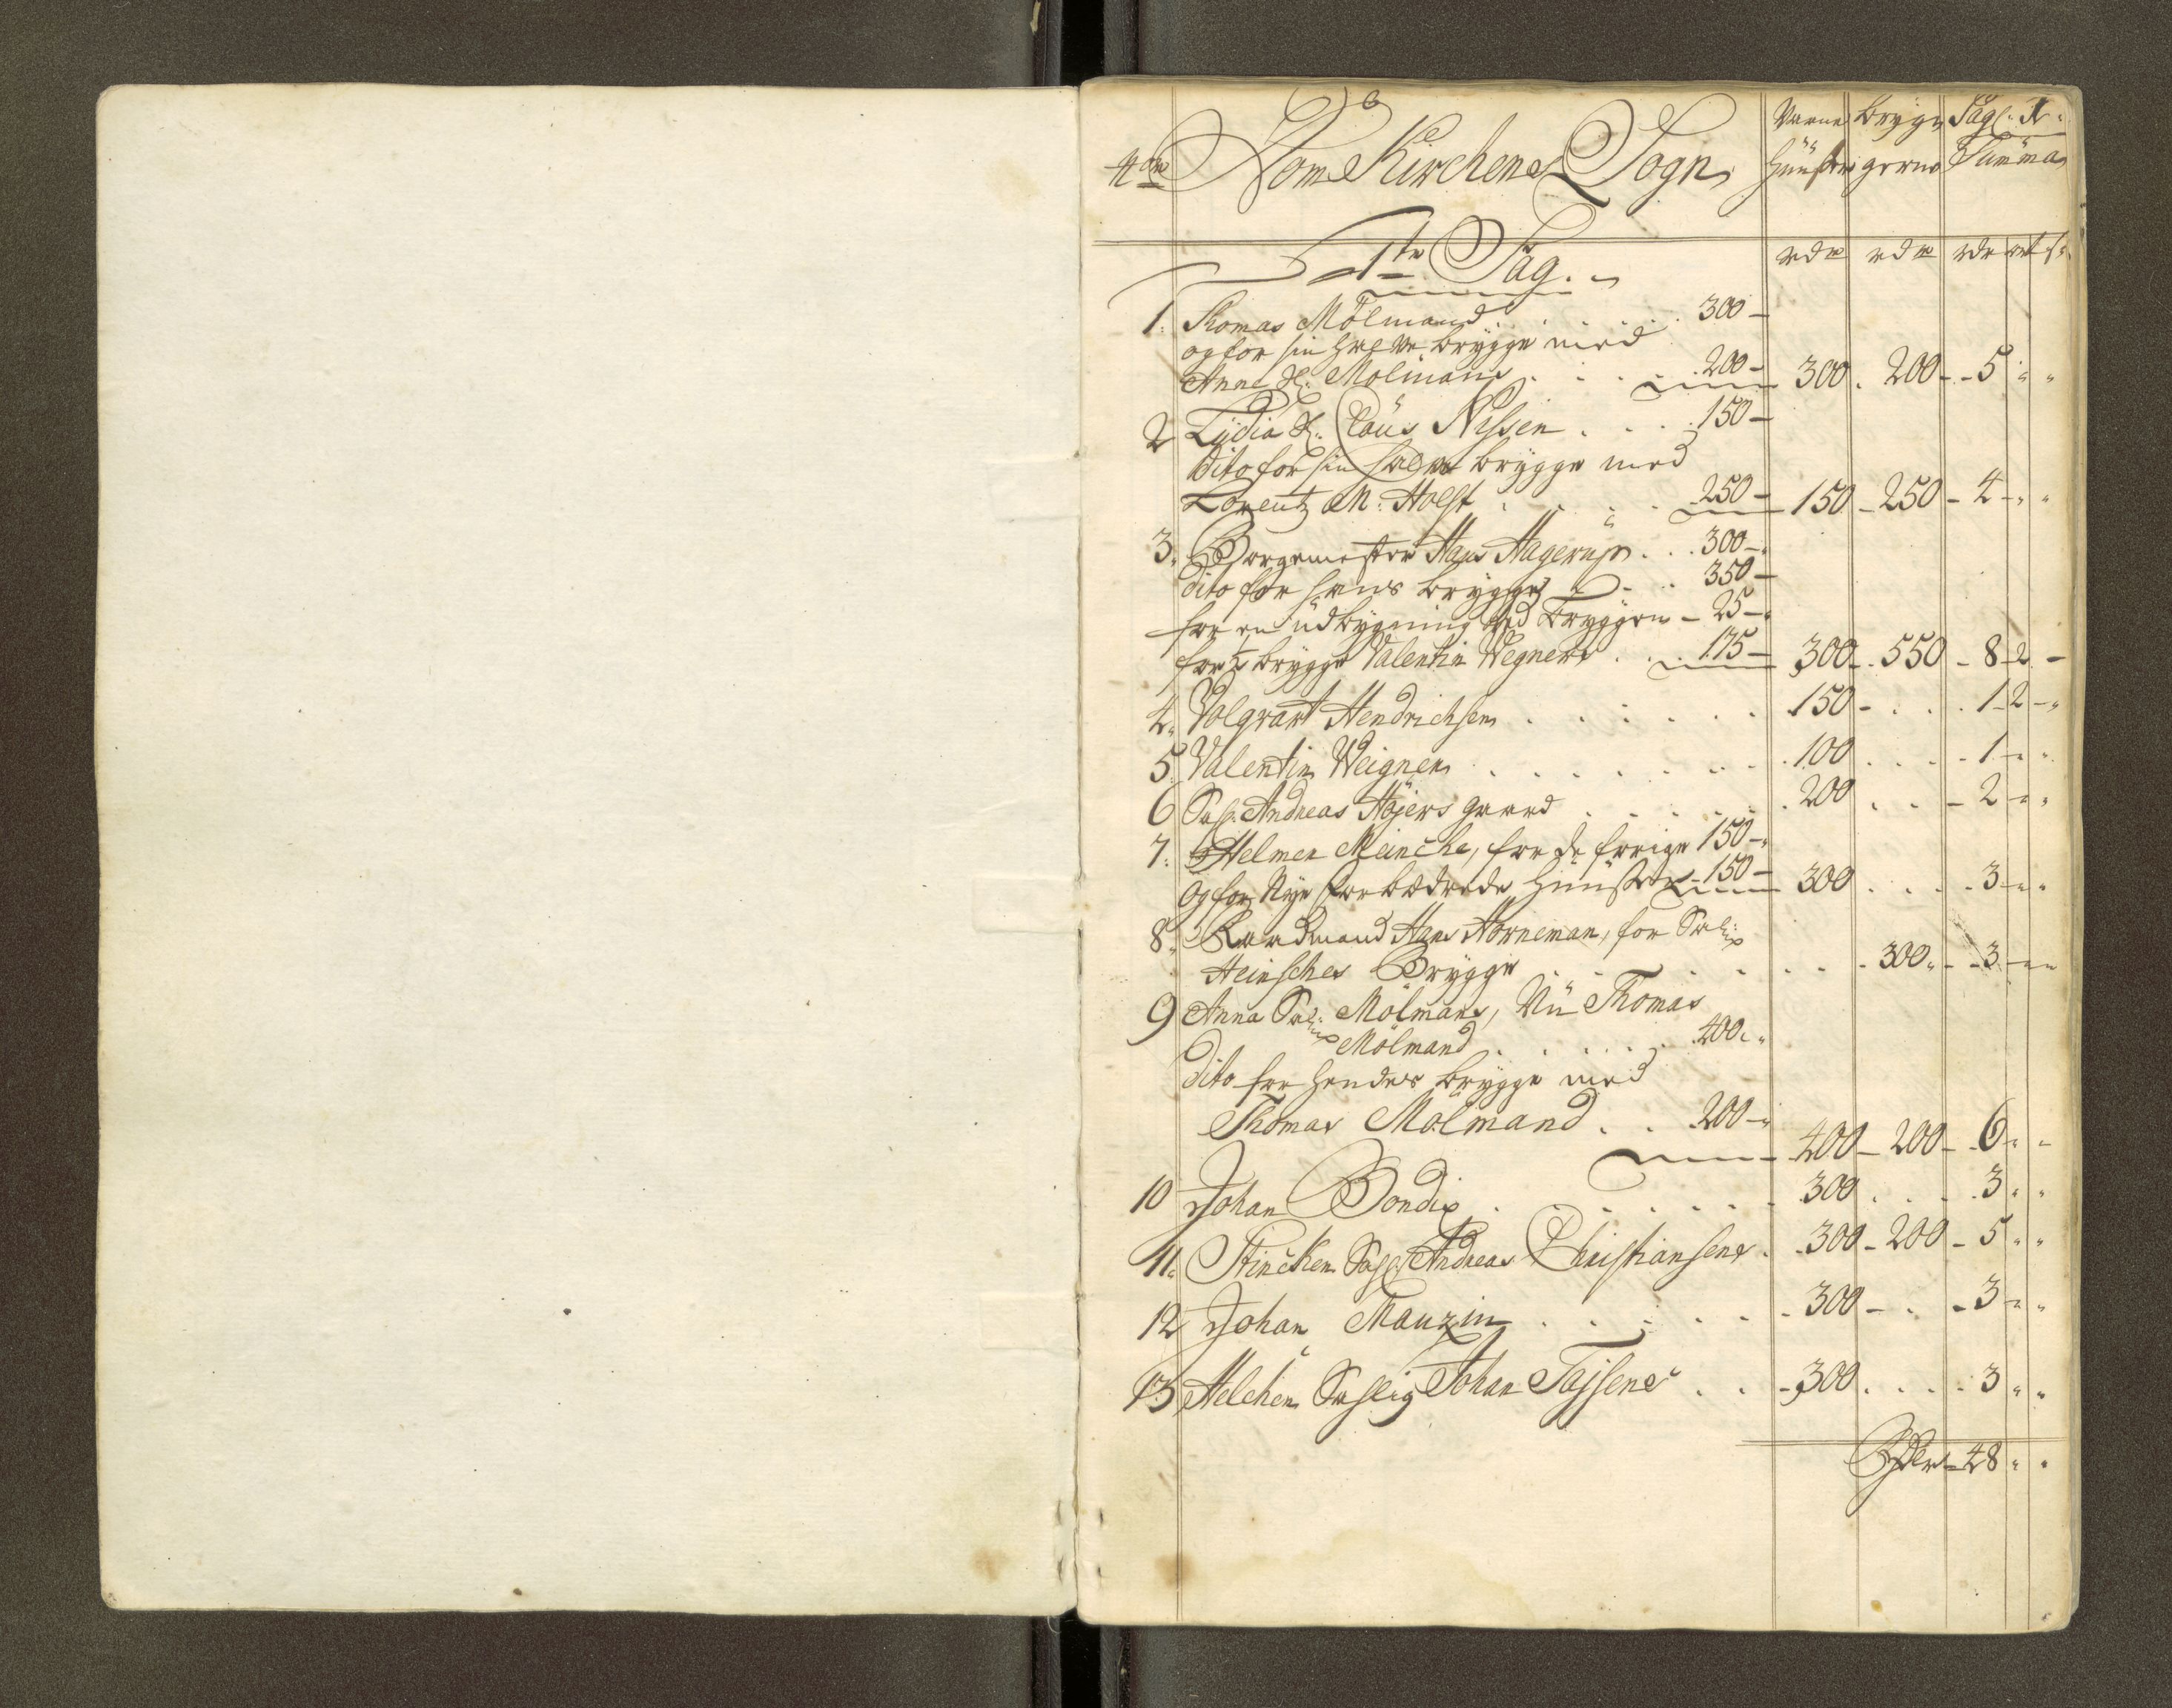 4de Dom Kirchens Sogn
Vaane Hüüsen
Brygergerne
Sagl: R: Summa
1te Sag.
rdr rdr rdr ort s:
1. Thomas Mölmand . . . . 300 –
og for sin halve brygge med
Anna Sl: Mölmans . . . . 200 – 300 . 200 – 5 " "
2 Lÿdia Sl: Claus Nissen . . . 150 –
Dito for sin halve brygge med
Lorentz M: Holst . . . . 250 – 150 – 250 – 4 – " "
3. Borgemester Hans Hagerup . . . 300 –
Dito for hans brygge . . . 350 –
for en üdbygning ved Bryggen – 25 –
for ½ brygge Valentin Wegners . . . 175 – 300 – 550 – 8 – 2 –
4. Volqvart Hendrichsen . . . . . . 150 – . . . 1 – 2 – "
5. Valentin Weigner . . . . . . . 100 . . . . 1 – "
6 Sal. Andreas Höjers gaard . . . . . 200 . . – 2 – "
7. Helmer Meincke, for de forige 150 –
og for Nye forbedrede Hüüser 150 – 300 . . . . 3 – "
8. Raadmand Hans Horneman, for Salig
Heinsches Brygge . . . . . . . – 300 " – 3 – "
9 Anna Salig Mölmans, Nü Thomas
Mölmand . . . . . 400 "
Dito for hendes brygge med
Thomas Mölmand . . 200 –
400 – 200 – 6 " "
10 Johan Bondix . . . . . . . 300 . . . . 3 " "
11. Stincken Sahl: Andreas Christiansens . 300 – 200 – 5 " "
12 Johan Mauzin . . . . . . – 300 – . . – 3 – "
13 Helchen Sahlig Johan Tajsens . . – 300 . . . . 3 " "
Rdlr – 48 " "